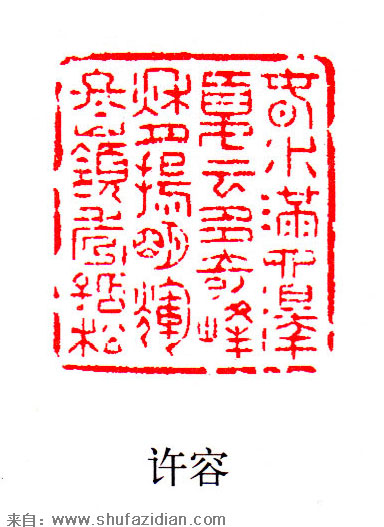 春水滿四澤
夏云多奇峰
秋月揚明煇
冬嶺秀孤松
许容
来自：www.shufazidian.com